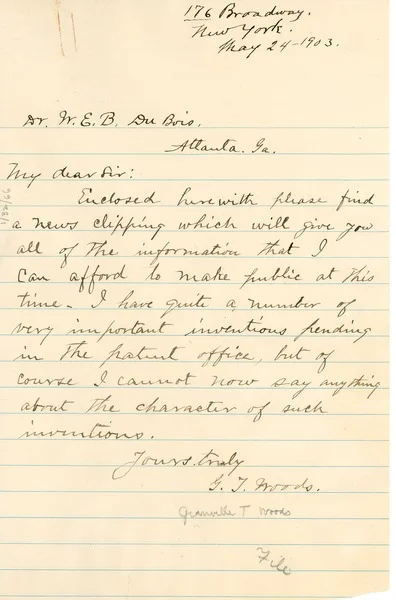 176 Broadway.
New York.
May 24-1903.
Dr. W. E. B. Du Bois.
Atlanta. Ga.
My dear Sir:
Enclosed herewith please find
a news clipping which will give you
all of the information that I
can afford to make public at this
time. I have quite a number of
very important inventions pending
in the patent office, but of
course I cannot now say anything
about the character of such
inventions.
Yours truly
G. T. Woods.
Granville T Woods
File